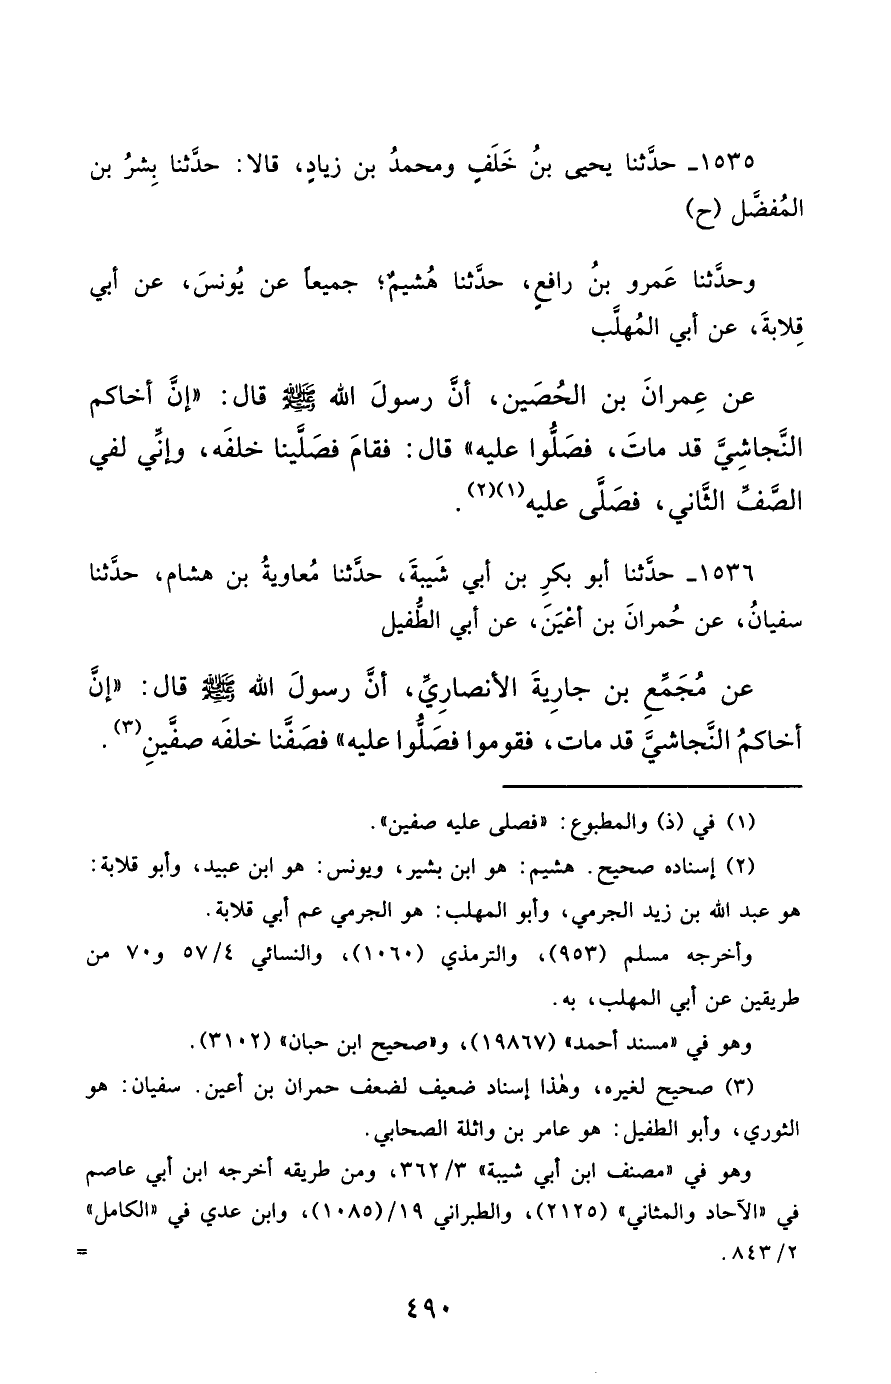 ١٥٣٥ـ حدَّثنا يحيى بنُ خَلَفٍ ومحمدُ بن زيادٍ، قالا: حدَّثنا بِشرُ بن
المُفضَّل (ح)
وحدَّثنا عَمرو بنُ رافعٍ، حدَّثنا هُشيمٌ؛ جميعاً عن يُونسَ، عن أبي
قِلابةَ، عن أبي المُهلَّب
عن عِمرانَ بن الحُصَين، أنَّ رسولَ الله ﷺ قال: «إنَّ أخاكم
النَّجاشِيَّ قد ماتَ، فصَلُّوا عليه» قال: فقامَ فصَلَّينا خلفَه، وإنِّي لفي
الصَّفِّ الثَّاني، فصَلَّى عليه(١)(٢).
١٥٣٦ـ حدَّثنا أبو بكرِ بن أبي شَيبةَ، حدَّثنا مُعاويةُ بن هشام، حدَّثنا
سفيانُ، عن حُمرانَ بن أعْيَنَ، عن أبي الطُّفيل
عن مُجَمِّعِ بن جارِيةَ الأنصارِيِّ، أنَّ رسولَ الله ﷺ قال: «إنَّ
أخاكمُ النَّجاشيَّ قد مات، فقوموا فصَلُّوا عليه» فصَفَّنا خلفَه صفَّينِ(٣).
(١) في (ذ) والمطبوع: «فصلى عليه صفين».
(٢) إسناده صحيح. هشيم: هو ابن بشير، ويونس: هو ابن عبيد، وأبو قلابة:
هو عبد الله بن زيد الجرمي، وأبو المهلب: هو الجرمي عم أبي قلابة.
وأخرجه مسلم (٩٥٣)، والترمذي (١٠٦٠)، والنسائي ٥٧/٤ و٧٠ من
طريقين عن أبي المهلب، به.
وهو في «مسند أحمد» (١٩٨٦٧)، و«صحيح ابن حبان» (٣١٠٢).
(٣) صحيح لغيره، وهٰذا إسناد ضعيف لضعف حمران بن أعين. سفيان: هو
الثوري، وأبو الطفيل: هو عامر بن واثلة الصحابي.
وهو في «مصنف ابن أبي شيبة» ٣٦٢/٣، ومن طريقه أخرجه ابن أبي عاصم
في «الآحاد والمثاني» (٢١٢٥)، والطبراني ١٩/(١٠٨٥)، وابن عدي في «الكامل»
٨٤٣/٢. =
٤٩٠